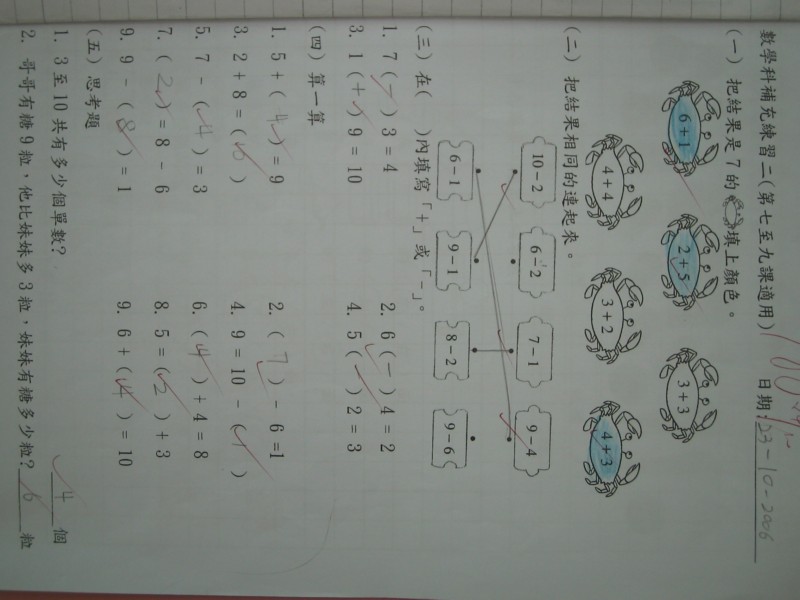 數學科補充練習二(第七至九課適用) 日期:23-10-2006
100
(一) 把結果是 7 的填上顏色。
6+1 2+5 3+3
4+4 3+2 4+3
(二) 把結果相同的連起來。
10-2 6-2 7-1 9-4
6-1 9-1 8-2 9-6
(三) 在( )內填寫「+」或「-」。
1. 7 (-) 3 = 4 2. 6 (-) 4 = 2
3. 1 (+) 9 = 10 4. 5 (-) 2 = 3
(四) 算一算
1. 5 + ( 4 ) = 9 2. ( 7 ) - 6 =1
3. 2 + 8 = ( ) 4. 9 = 10 - ( )
5. 7 - ( 4 ) = 3 6. ( 4 ) + 4 = 8
7. ( 2 ) = 8 - 6 8. 5 = ( 2 ) + 3
9. 9 - ( 8 ) = 1 9. 6 + ( 4 ) = 10
(五) 思考題
1. 3 至 10 共有多少個單數? 4 個
2. 哥哥有糖 9 粒，他比妹妹多 3 粒，妹妹有糖多少粒? 6 粒